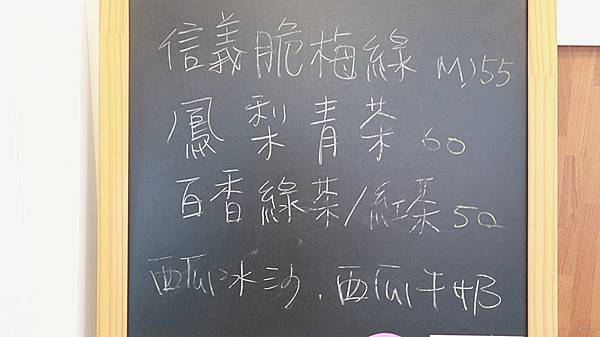 信義脆梅綠 M)55
鳳梨青茶 60
百香綠茶/紅茶 50
西瓜冰沙.西瓜牛奶